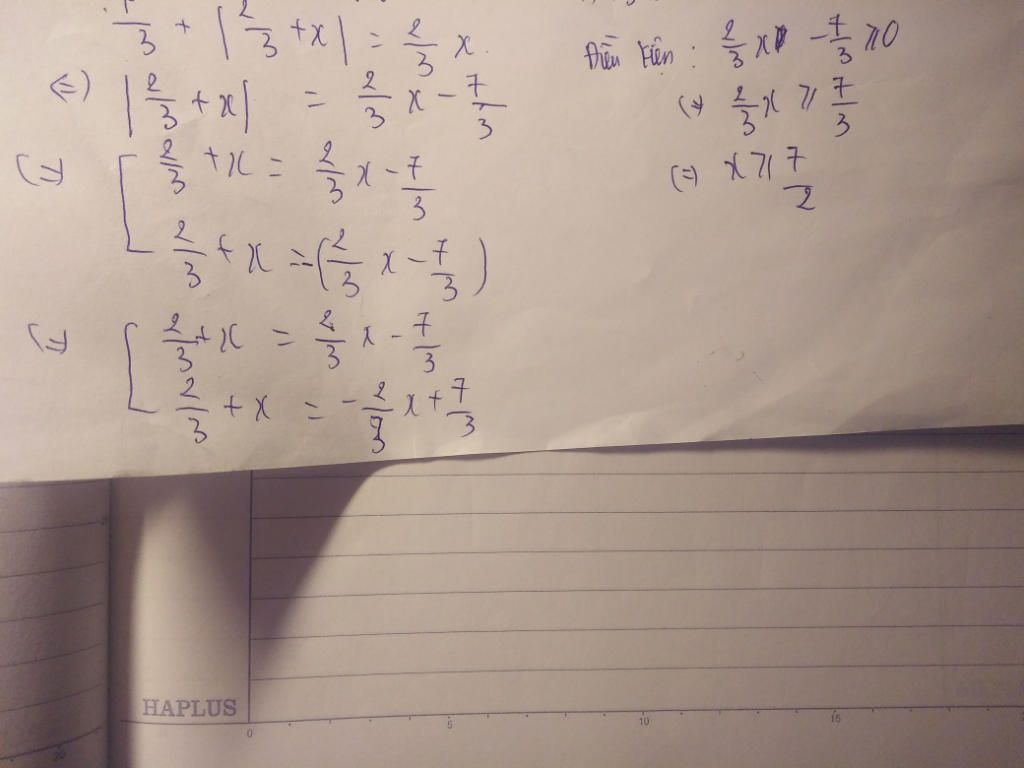 /3 + |2/3 + x| = 2/3 x.
Điều kiện : 2/3 x - 7/3 ⩾ 0
<=> |2/3 + x| = 2/3 x - 7/3
<=> 2/3 x ⩾ 7/3
<=> [ 2/3 + x = 2/3 x - 7/3
<=> x ⩾ 7/2
2/3 + x = -(2/3 x - 7/3)
<=> [ 2/3 + x = 2/3 x - 7/3
2/3 + x = - 2/3 x + 7/3
HAPLUS
0 5 10 15